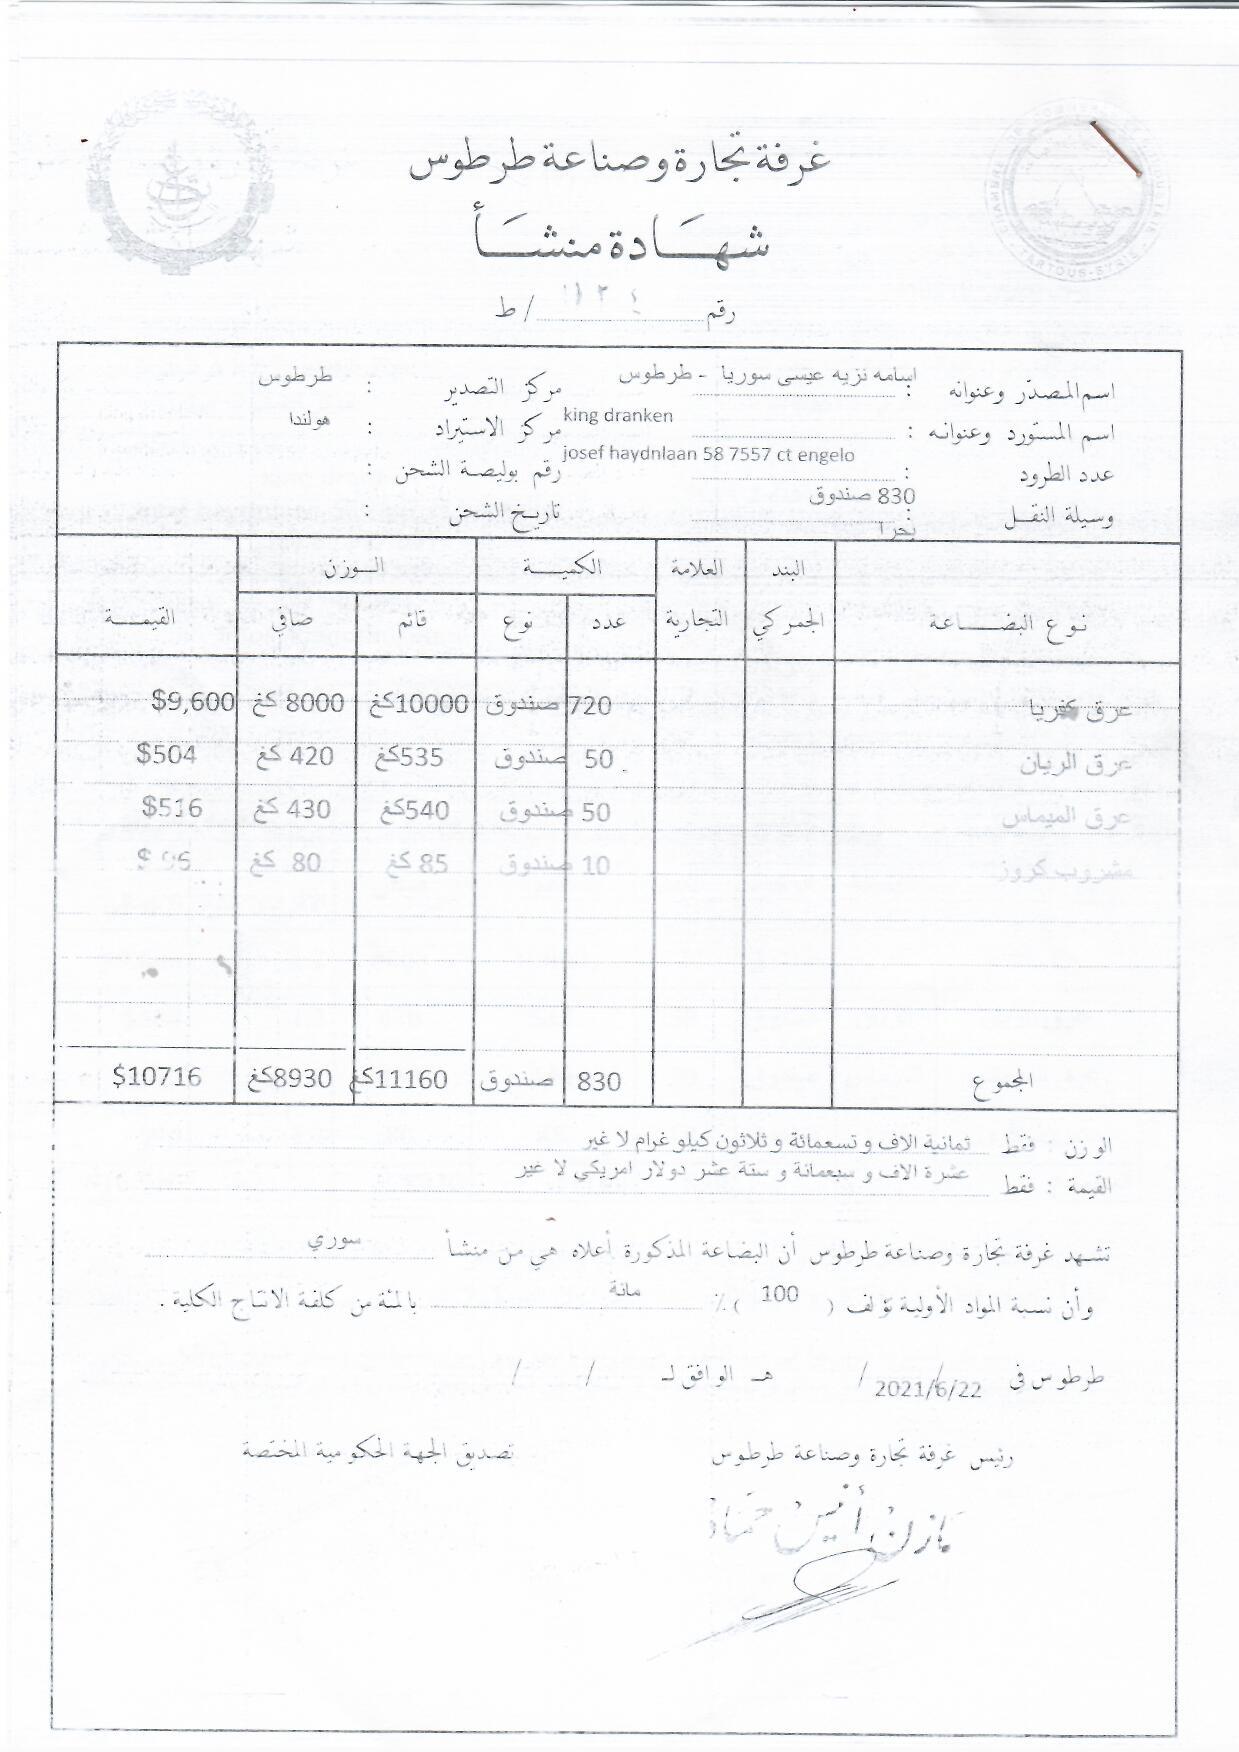 غرفة تجارة وصناعة طرطوس
شهادة منشأ
رقم / ط
اسم المصدّر وعنوانه : اسامه نزيه عيسى سوريا - طرطوس
مركز التصدير : طرطوس
اسم المستورد وعنوانه : king dranken
مركز الاستيراد : هولندا
josef haydnlaan 58 7557 ct engelo
عدد الطرود : 830 صندوق
رقم بوليصة الشحن :
وسيلة النقل : بحرا
تاريخ الشحن :
نوع البضاعة البند الجمركي العلامة التجارية الكمية الوزن القيمة
عدد نوع قائم صافي
عرق كفريا 720 صندوق 10000كغ 8000 كغ $9,600
عرق الريان 50 صندوق 535كغ 420 كغ $504
عرق الميماس 50 صندوق 540كغ 430 كغ $516
مشروب كروز 10 صندوق 85 كغ 80 كغ
المجموع 830 صندوق 11160كغ 8930كغ $10716
الوزن : فقط ثمانية الاف و تسعمائة و ثلاثون كيلو غرام لا غير
القيمة : فقط عشرة الاف و سبعمائة و ستة عشر دولار امريكي لا غير
تشهد غرفة تجارة وصناعة طرطوس أن البضاعة المذكورة أعلاه هي من منشأ سوري
وأن نسبة المواد الأولية تؤلف ( 100 )٪ مائة بالمئة من كلفة الانتاج الكلية .
طرطوس في 2021/6/22 / هـ الوافق لـ / /
رئيس غرفة تجارة وصناعة طرطوس
تصديق الجهة الحكومية المختصة
مازن أنيس حماد